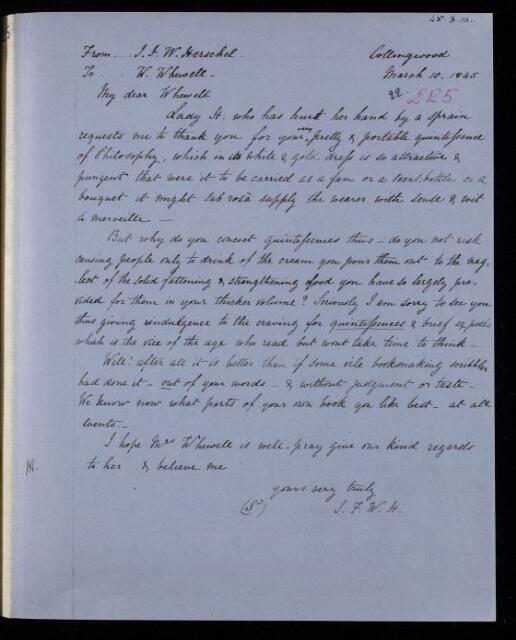 45.3.10.
From J. F. W. Herschel Collingwood
To W. Whewell March 10. 1845
225
My dear Whewell
Lady H. who has hurt her hand by a sprain
requests me to thank you for your very pretty & portable quintessence
of Philosophy, which in its white & gold dress is so attractive &
pungent that were it to be carried as a fan or a scent bottle or a
bouquet it might sub rosâ supply the wearer with sense & wit
a merveille —
But why do you concoct quintessences thus - do you not risk
causing people only to drink of the cream you pour them out to the neg-
lect of the solid fattening & strengthening food you have so largely pro-
vided for them in your thicker volume? Seriously I am sorry to see you
thus giving indulgence to the craving for quintessences & brief
which is the vice of the age who read but wont take time to think -
Well! after all it is better than if some vile bookmaking scribbler
had done it - out of your words - & without judgment or taste -
We know now what parts of your own book you like best - at all
events. -
I hope Mrs Whewell is well - pray give our kind regards
to her & believe me
yours very truly
J. F. W. H.